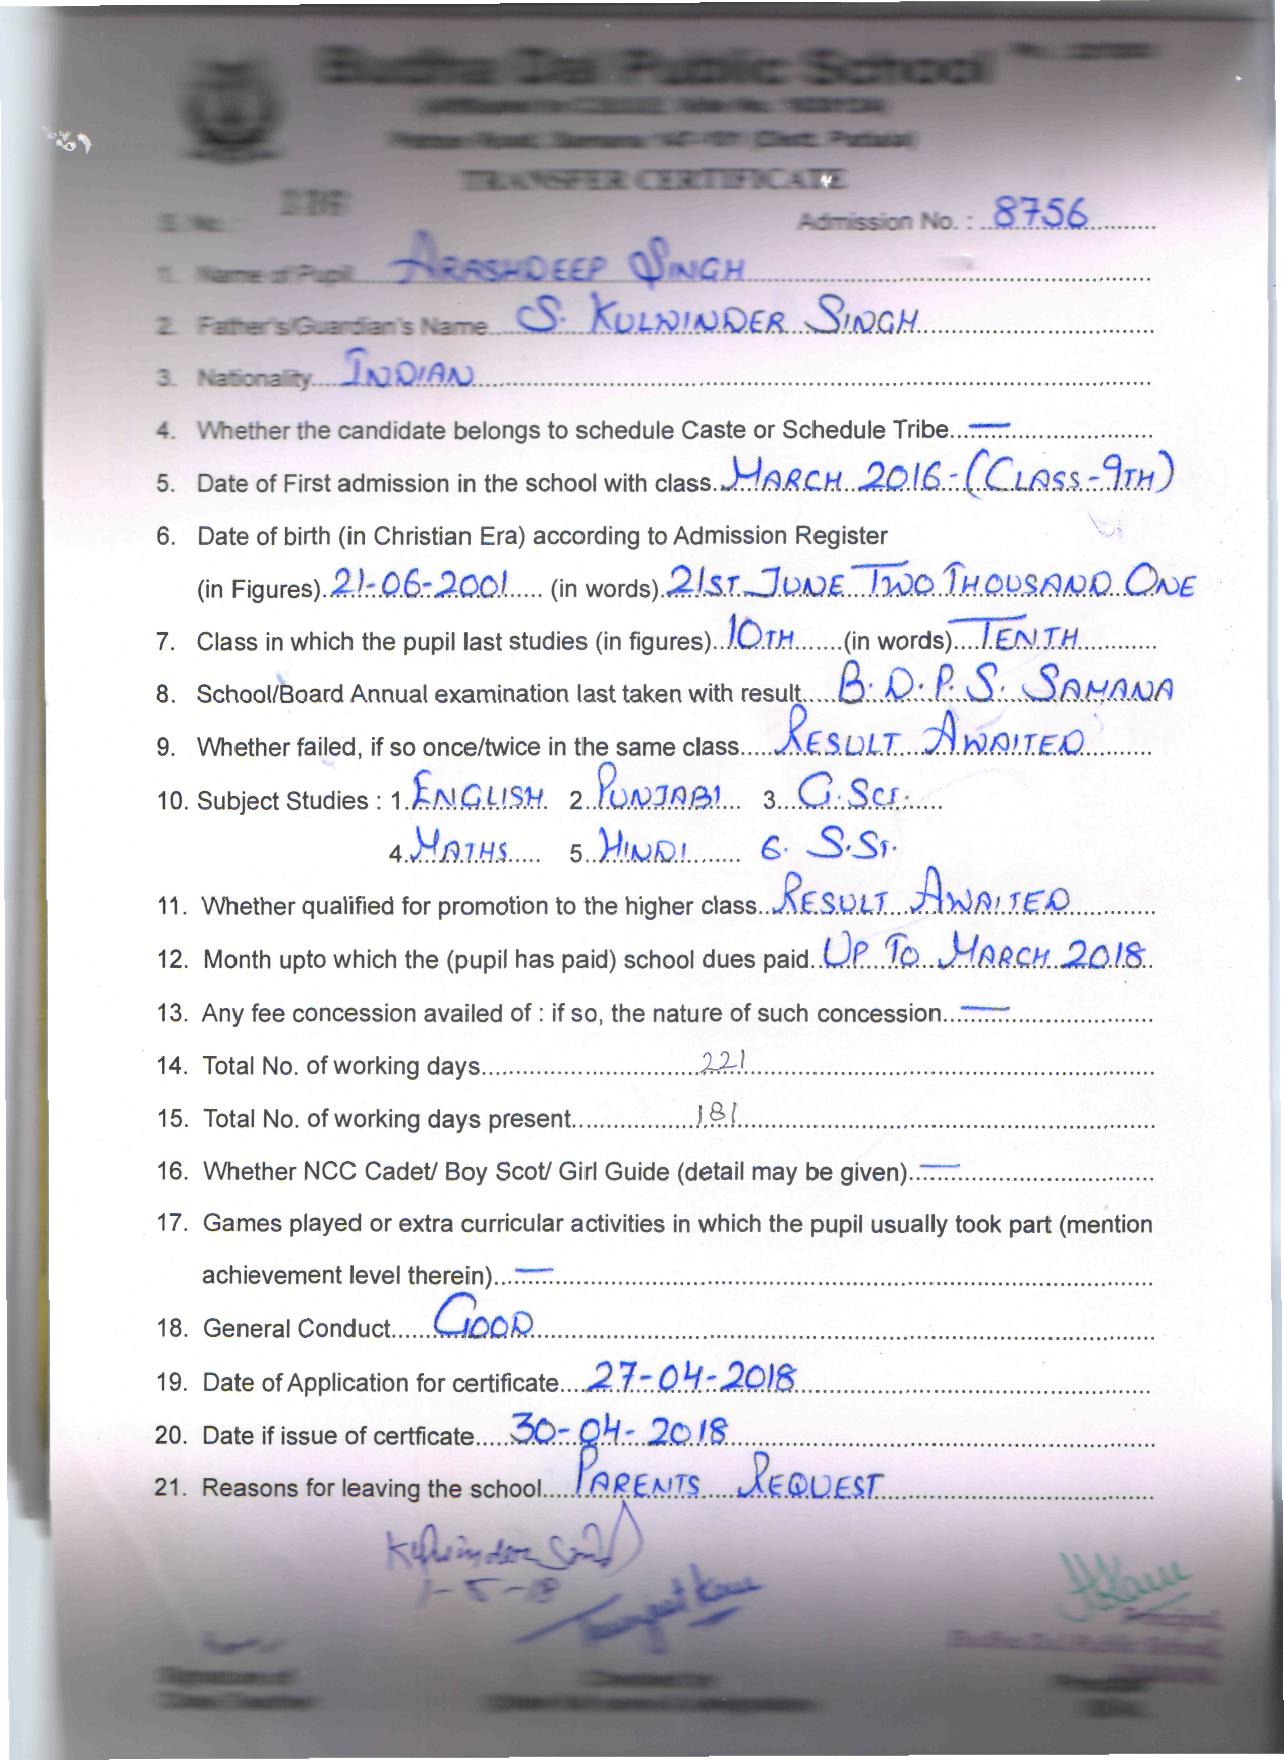 Budha Dal Public School
TRANSFER CERTIFICATE
S. No. :
Admission No. : 8756
1. Name of Pupil ARASHDEEP SINGH
2. Father's/Guardian's Name S. KULWINDER SINGH
3. Nationality INDIAN
4. Whether the candidate belongs to schedule Caste or Schedule Tribe —
5. Date of First admission in the school with class MARCH 2016-(CLASS-9TH)
6. Date of birth (in Christian Era) according to Admission Register
(in Figures) 21-06-2001 (in words) 21ST JUNE TWO THOUSAND ONE
7. Class in which the pupil last studies (in figures) 10TH (in words) TENTH
8. School/Board Annual examination last taken with result B.D.P.S. SAMANA
9. Whether failed, if so once/twice in the same class RESULT AWAITED
10. Subject Studies : 1. ENGLISH 2. PUNJABI 3. G.SCI.
4. MATHS 5. HINDI 6. S.ST.
11. Whether qualified for promotion to the higher class RESULT AWAITED
12. Month upto which the (pupil has paid) school dues paid UP TO MARCH 2018
13. Any fee concession availed of : if so, the nature of such concession —
14. Total No. of working days 221
15. Total No. of working days present 181
16. Whether NCC Cadet/ Boy Scot/ Girl Guide (detail may be given) —
17. Games played or extra curricular activities in which the pupil usually took part (mention
achievement level therein) —
18. General Conduct GOOD
19. Date of Application for certificate 27-04-2018
20. Date if issue of certficate 30-04-2018
21. Reasons for leaving the school PARENTS REQUEST
Kulwinder Singh
1-5-18
Principal,
Budha Dal Public School,
Signature of
Class Teacher